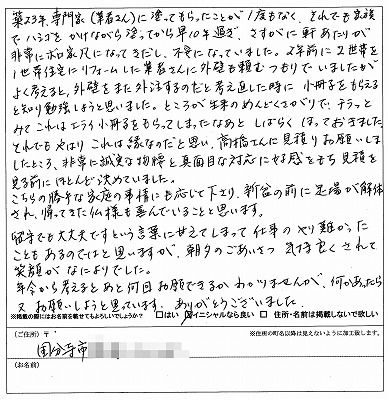 築23年、専門家(業者さん)に塗ってもらったことが1度もなく、それでも家族
でハシゴをかけながら塗ってから早10年過ぎ、さすがに軒あたりが
非常にボロ家風になってきだし、不安になっていました。2年前に2世帯を
1世帯住宅にリフォームした業者さんに外壁も頼むつもりでいましたが
よく考えると、外壁をまた外注するのだと考え直した時に小冊子をもらえる
と知り勉強しようと思いました。ところが生来のめんどくさがりで、チラッと
みてこれはエライ小冊子をもらってしまったなあとしばらくほっておきました。
それでもやはりこれは縁なのだと思い、高橋さんに見積りお願いしま
したところ、非常に誠実な物腰と真面目な対応に好感をもち見積を
見る前にほとんど決めていました。
こちらの勝手な家庭の事情にも応じて下さり、新盆の前に足場が解体
され、帰ってきた仏様も喜んでいることと思います。
留守でも大丈夫ですという言葉に甘えてしまって仕事のやり難かった
こともあるのではと思いますが、朝夕のごあいさつ気持良くされて
笑顔がなによりでした。
年令から考えるとあと何回お願できるかわかりませんが、何かあったら
又お願いしようと思っています。ありがとうございました。
※掲載の際にはお名前を載せてもよろしいでしょうか? □はい ☑イニシャルなら良い □住所・名前は掲載しないで欲しい
(ご住所) 〒 ※住所の町名以降は見えないように加工致します。
国分寺市
(お名前)